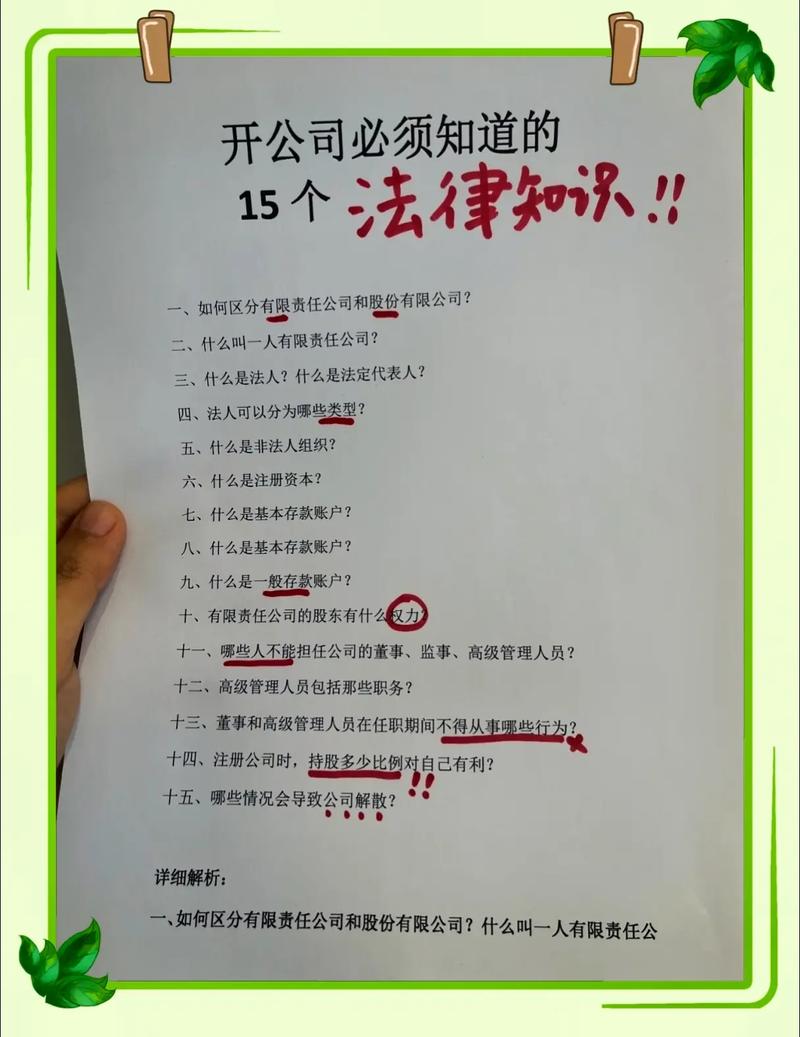 开公司必须知道的
15个 法律知识!!
一、如何区分有限责任公司和股份有限公司？
二、什么叫一人有限责任公司？
三、什么是法人？什么是法定代表人？
四、法人可以分为哪些类型？
五、什么是非法人组织？
六、什么是注册资本？
七、什么是基本存款账户？
八、什么是基本存款账户？
九、什么是一般存款账户？
十、有限责任公司的股东有什么权力？
十一、哪些人不能担任公司的董事、监事、高级管理人员？
十二、高级管理人员包括那些职务？
十三、董事和高级管理人员在任职期间不得从事哪些行为？
十四、注册公司时，持股多少比例对自己有利？
!!
十五、哪些情况会导致公司解散？
详细解析：
一、如何区分有限责任公司和股份有限公司？什么叫一人有限责任公